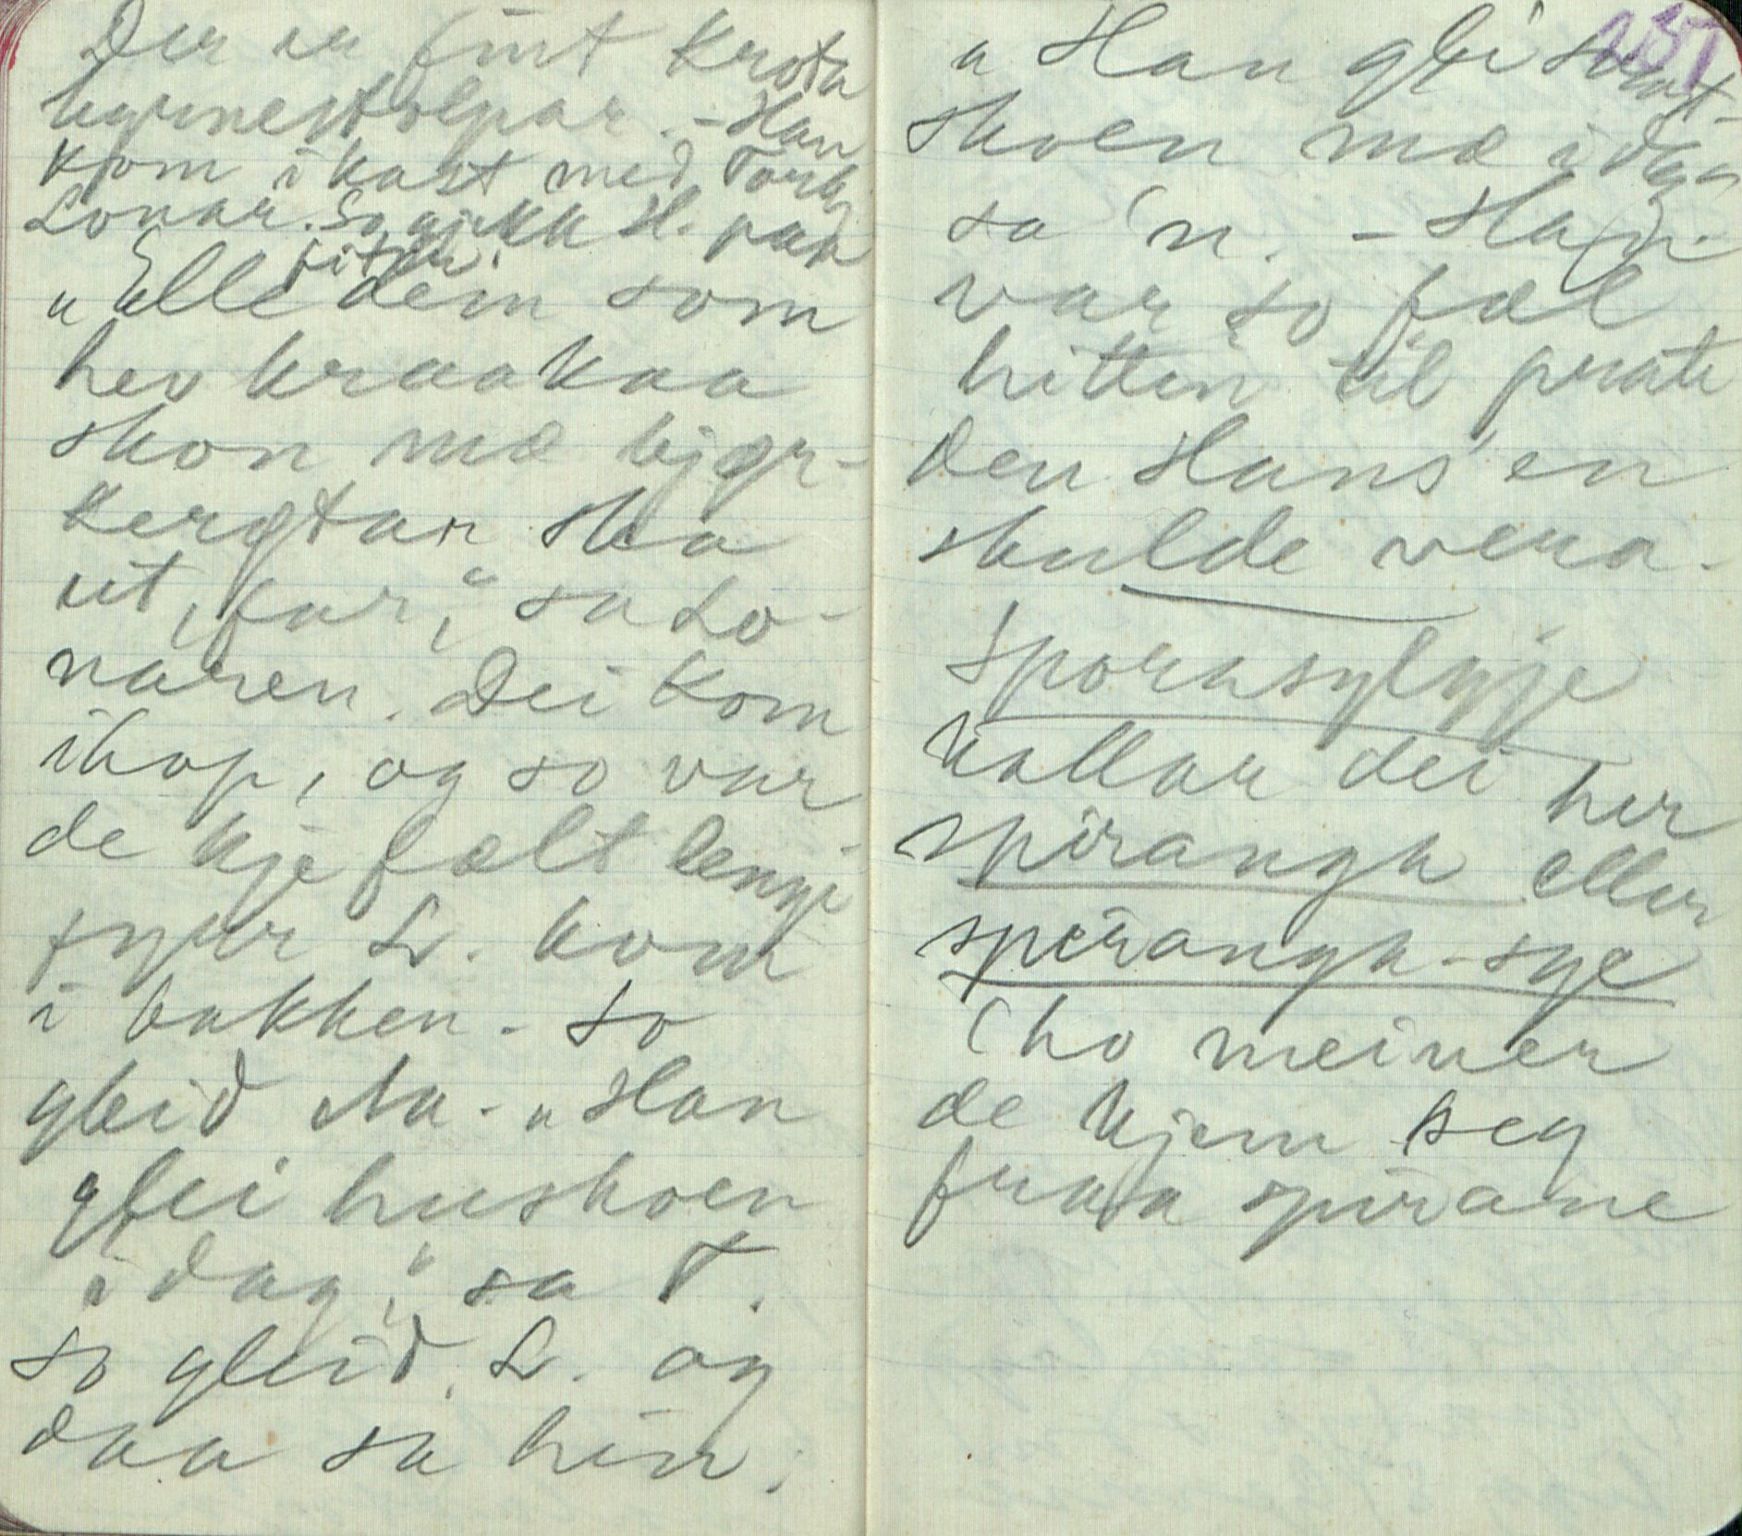 Der er fint krota
hyrnestolpar. - Han
kom i kast med Torb.
Lonar. So gjekk H. paa
"Elle dem som
hev kraakaa
skon mæ bjør-
kerøtar ska
ut, far," sa Lo-
naren. Dei kom
ihop, og so var
de kje fælt lengje
fyrr L. kom
i bakken. So
gleid Aa. "Han
glei huskoen
idag," sa T.
so gleid L. og
daa sa hin:
237
"Han glei svart-
skoen mæ idag"
sa 'n. - Ha(n)
var so fæl
hitten til prate
den Hans'en
skulde vera.
Sporasylgje
kallar dei her
spirangh eller
spirangh-sye
(ho meiner
de kjem seg
fraa spirane